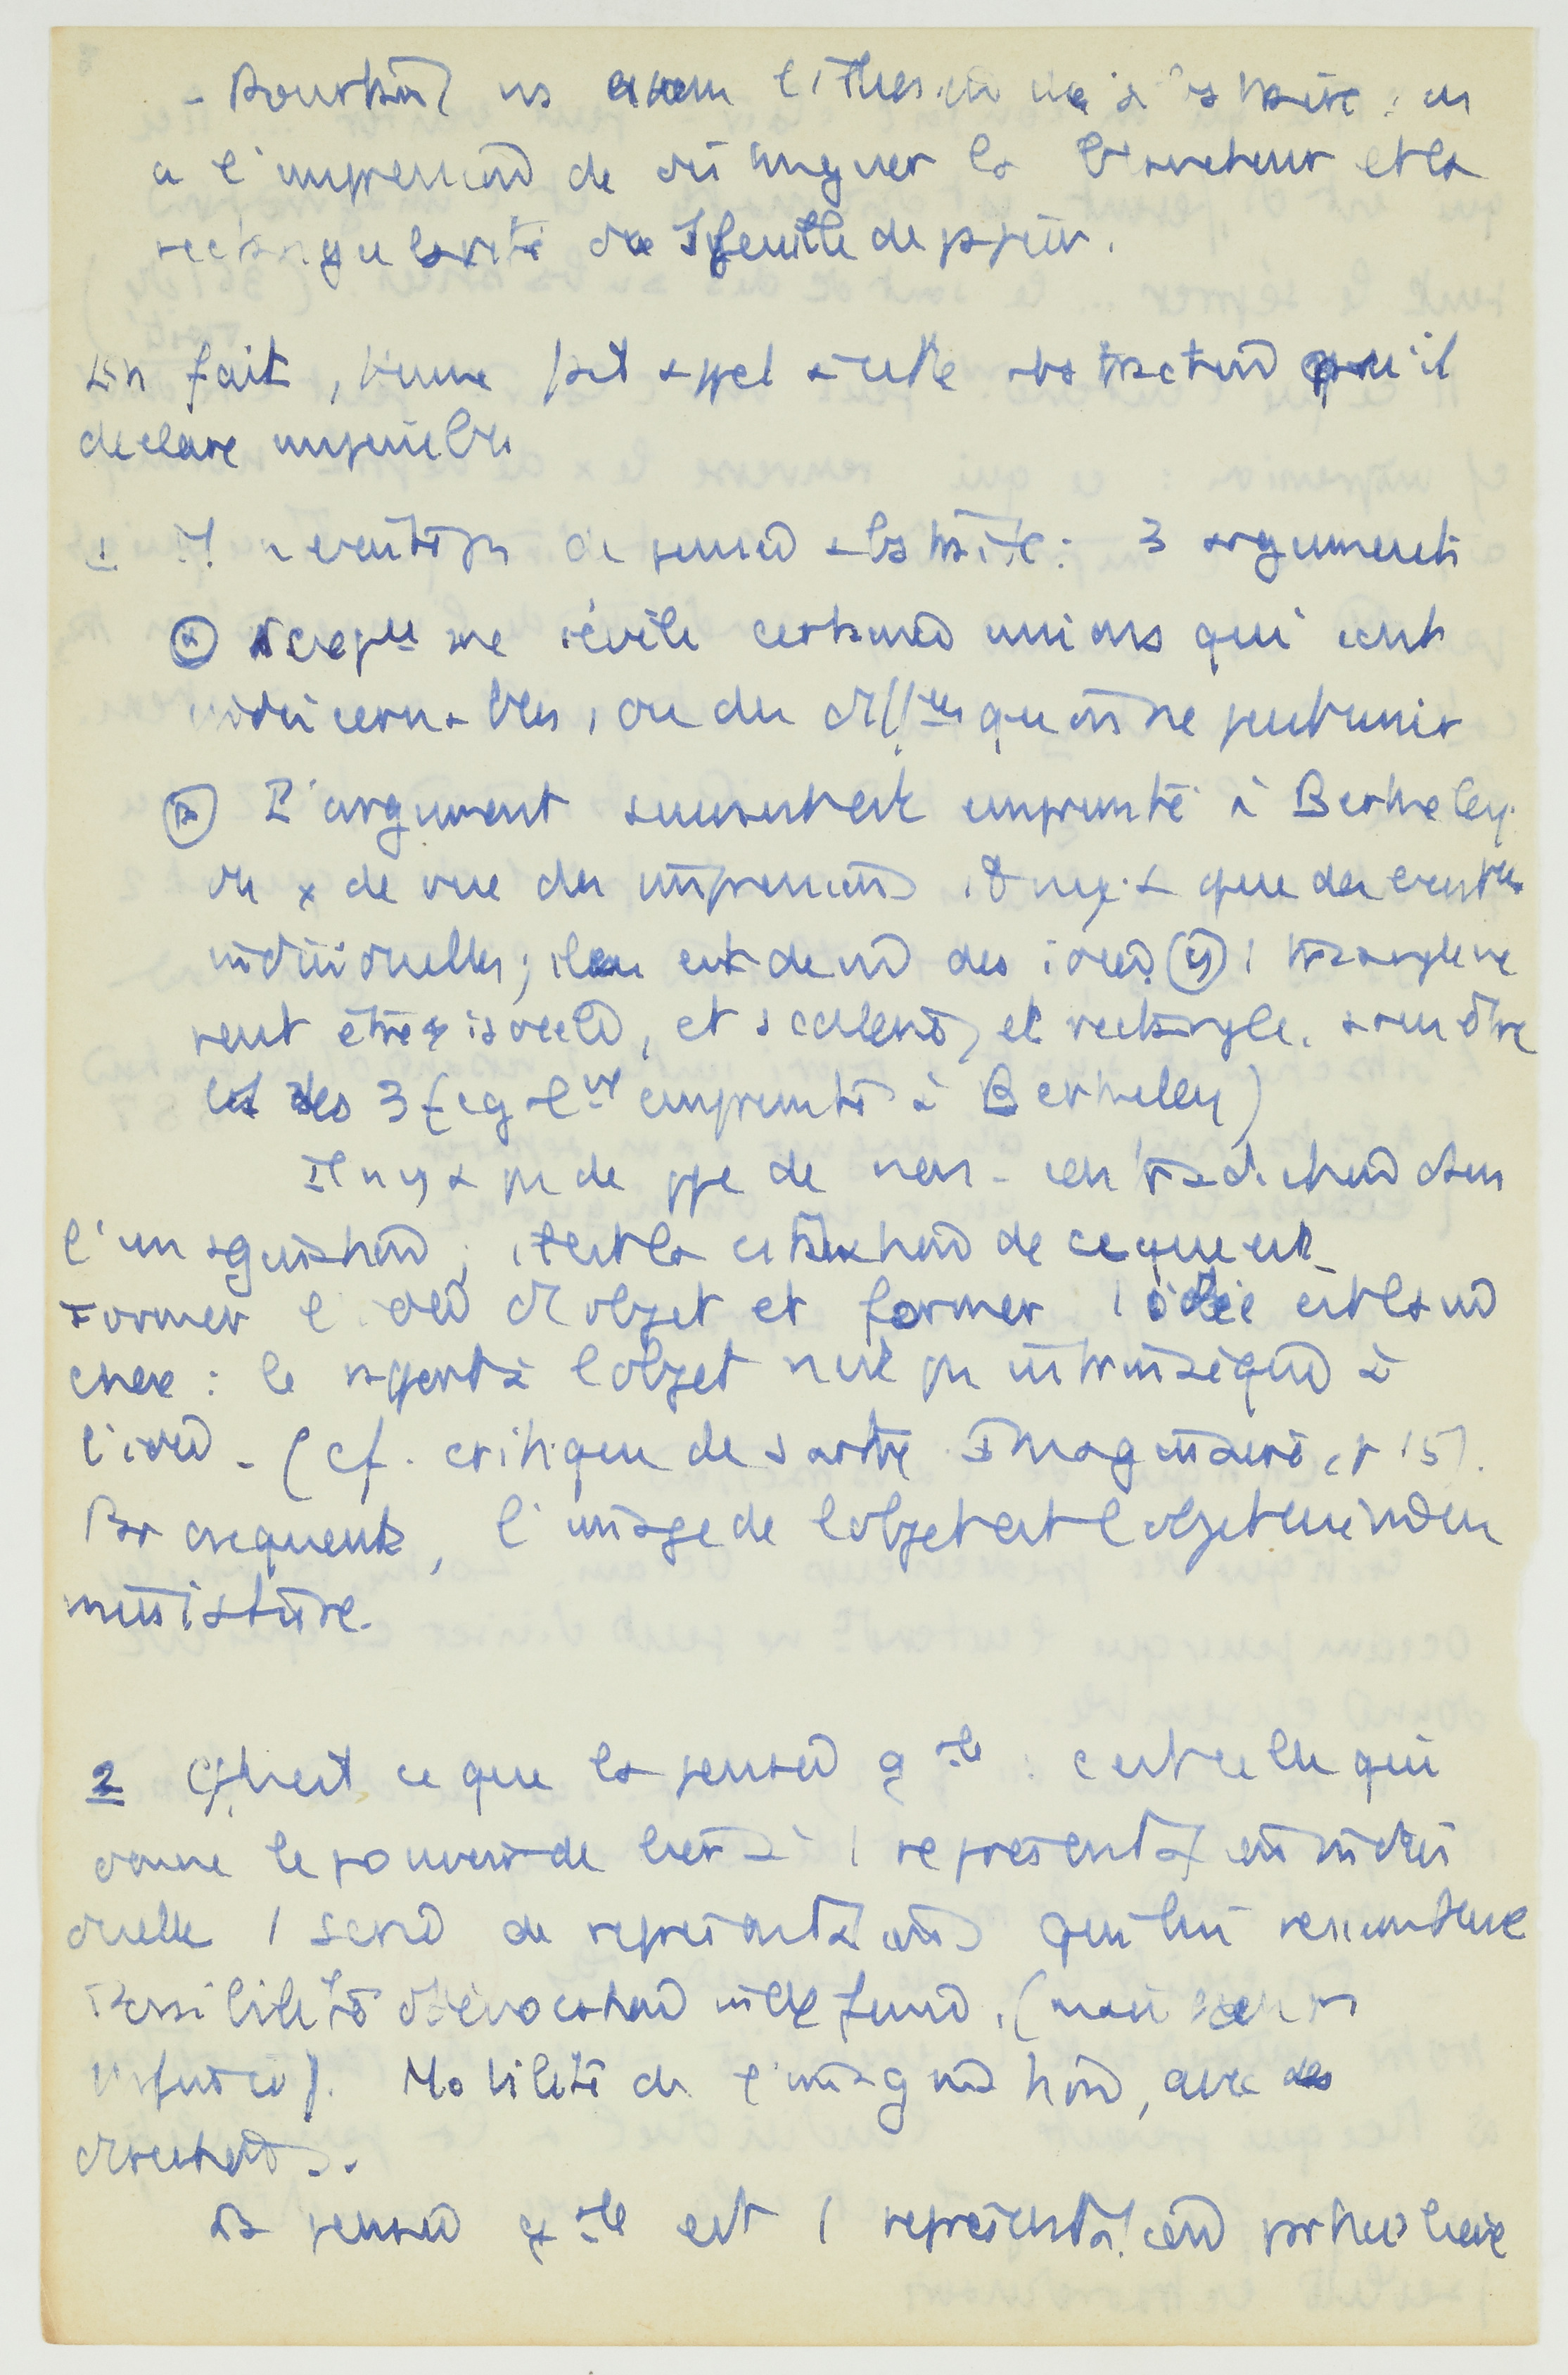 - Pourtant ns avons l'illusion de l'abstraire : on
a l'impression de distinguer la blancheur et la
rectangularité de 1 feuille de papier.
En fait, Hume fait appel à cette abstraction qu'il
déclare impossible
1 Il n'existe pas de pensée abstraite : 3 arguments
me révèle certaines unions qui sont
indiscernables, ou des diffces qu'on ne peut unir
(b) L'argument souvent emprunté à Berkeley.
du x de vue des impressions, il n'y a que des exces
individuelles ; il en est de m̂ des idées. (y) 1 triangle ne
peut être et isocèle, et scalène, et rectangle, sans être
les 3 (eglt emprunté à Berkeley)
Il n'y a pas de ppe de non-contradiction dans
l'imagination ; c'est la de ce que c'est
Former l'idée d'1 objet et former 1 idée est la m̂
chose : le rapport à l'objet n'est pas intrinsèque à
l'idée - (cf. critique de Sartre Imaginaire, p 15).
Par conséquent, l'image de l'objet est l'objet lui-même en
miniature.
2 Qu'est ce que la pensée gale : c'est celle qui
donne le pouvoir de lier à 1 représentation indivi
duelle 1 série de représentations qui lui ressemblent
Possibilité d'évocation indéfinie, (mais non pas
infinie). Mobilité de l'imagination, avec des
directions.
La pensée gale est 1 représentation particulière